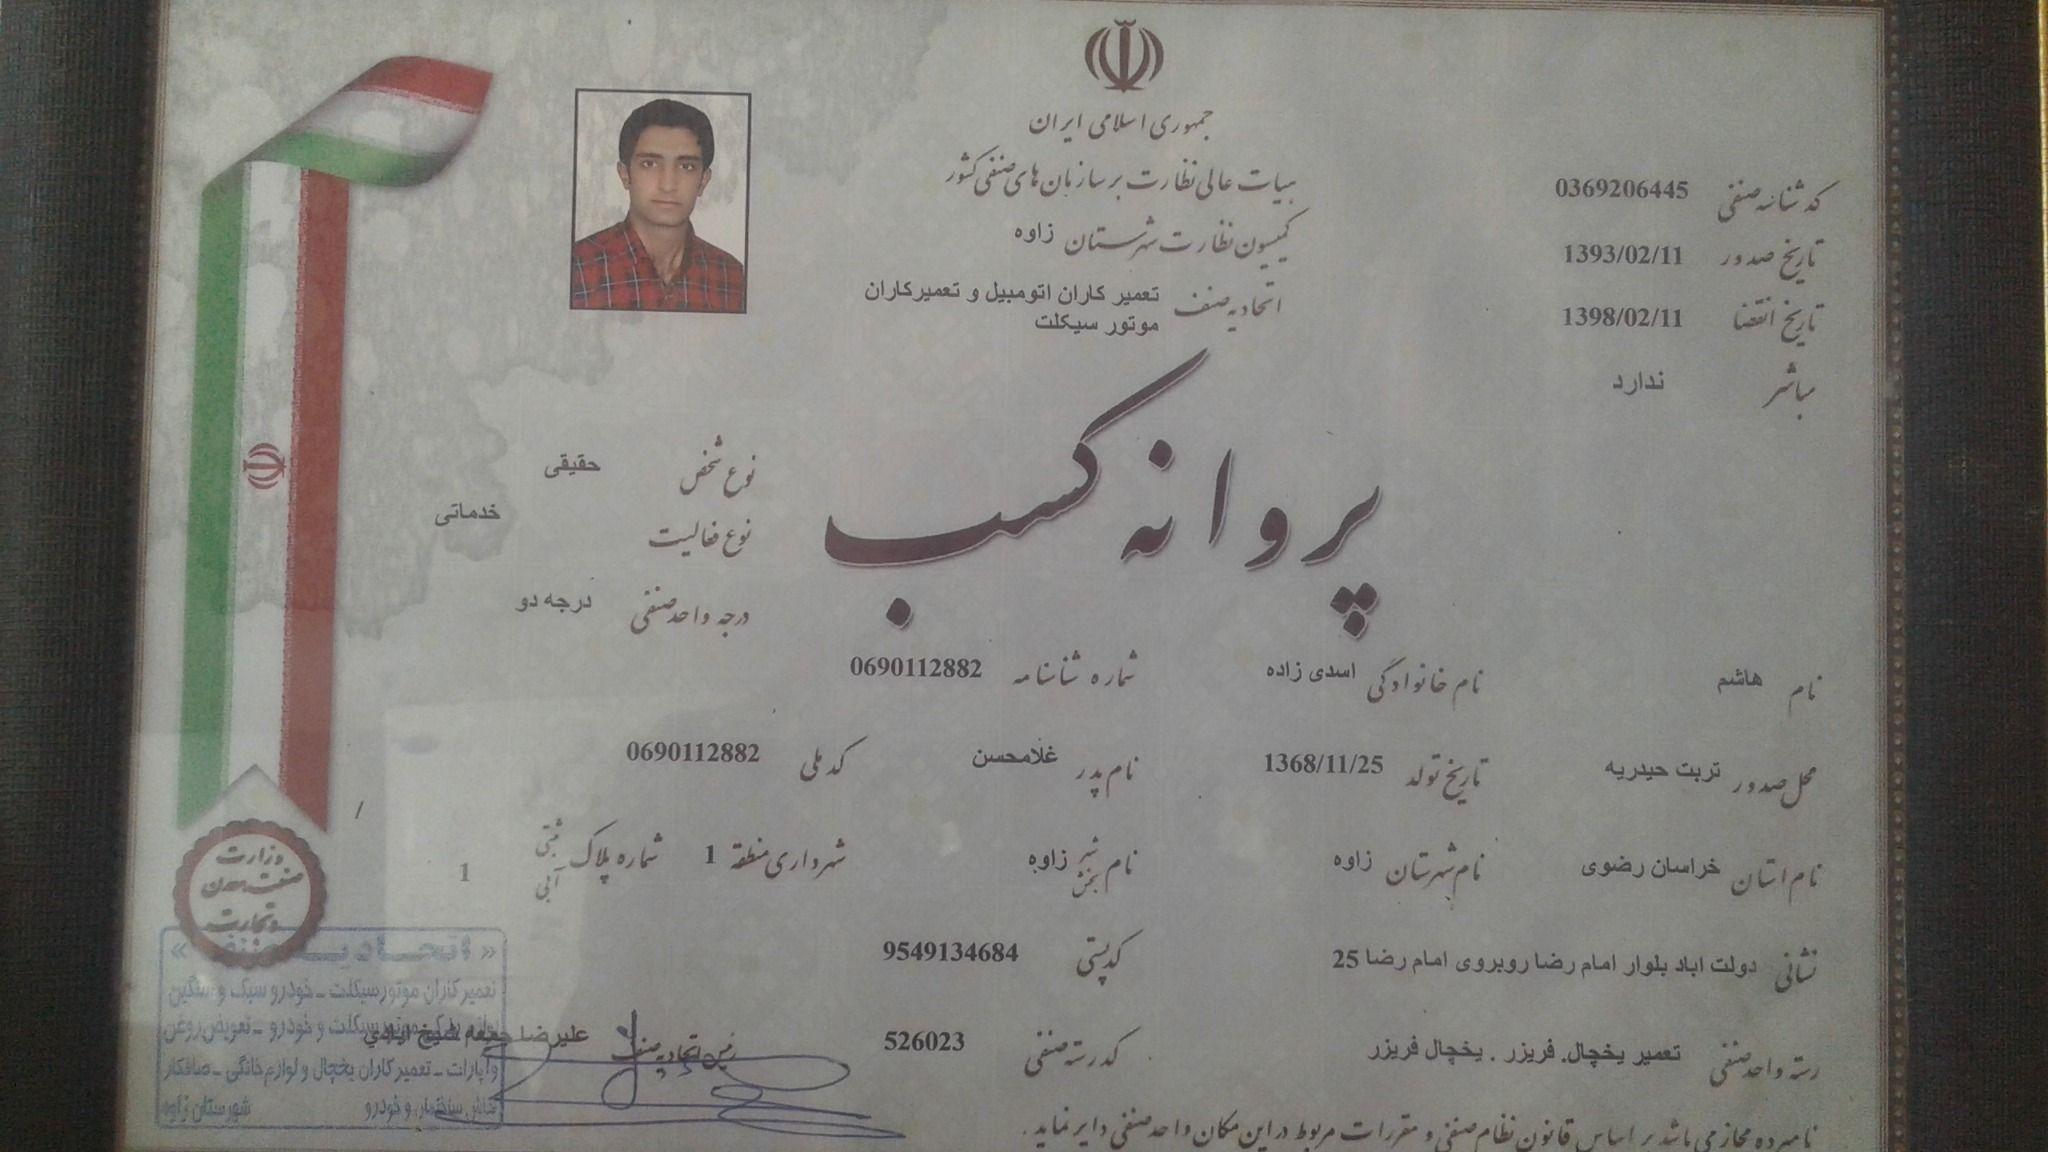 جمهوری اسلامی ایران
هیات عالی نظارت بر سازمان های صنفی کشور
کمیسیون نظارت شهرستان زاوه
اتحادیه صنف تعمیر کاران اتومبیل و تعمیرکاران
موتور سیکلت
کد شناسه صنفی 0369206445
تاریخ صدور 1393/02/11
تاریخ انقضا 1398/02/11
مباشر ندارد
پروانه کسب
نوع شخص حقیقی
نوع فعالیت خدماتی
درجه واحد صنفی درجه دو
نام هاشم نام خانوادگی اسدی زاده شماره شناسنامه 0690112882
محل صدور تربت حیدریه تاریخ تولد 1368/11/25 نام پدر غلامحسن کد ملی 0690112882 /
نام استان خراسان رضوی نام شهرستان زاوه نام شهر بخش زاوه شهرداری منطقه 1 شماره پلاک ثبتی آبی 1
نشانی دولت اباد بلوار امام رضا روبروی امام رضا 25 کد پستی 9549134684
رسته واحد صنفی تعمیر یخچال. فریزر . یخچال فریزر کد رسته صنفی 526023
رئیس اتحادیه صنف علیرضا جمعه
نامبرده مجاز می باشد بر اساس قانون نظام صنفی و مقررات مربوط در این مکان واحد صنفی دایر نماید .
وزارت
صنعت معدن
و تجارت
« اتحادیه صنف »
تعمیرکاران موتورسیکلت ـ خودرو سبک و سنگین
موتورسیکلت و خودرو ـ تعویض روغن
و آپارات ـ تعمیرکاران یخچال و لوازم خانگی ـ صافکار
نقاش ساختمان و خودرو شهرستان زاوه